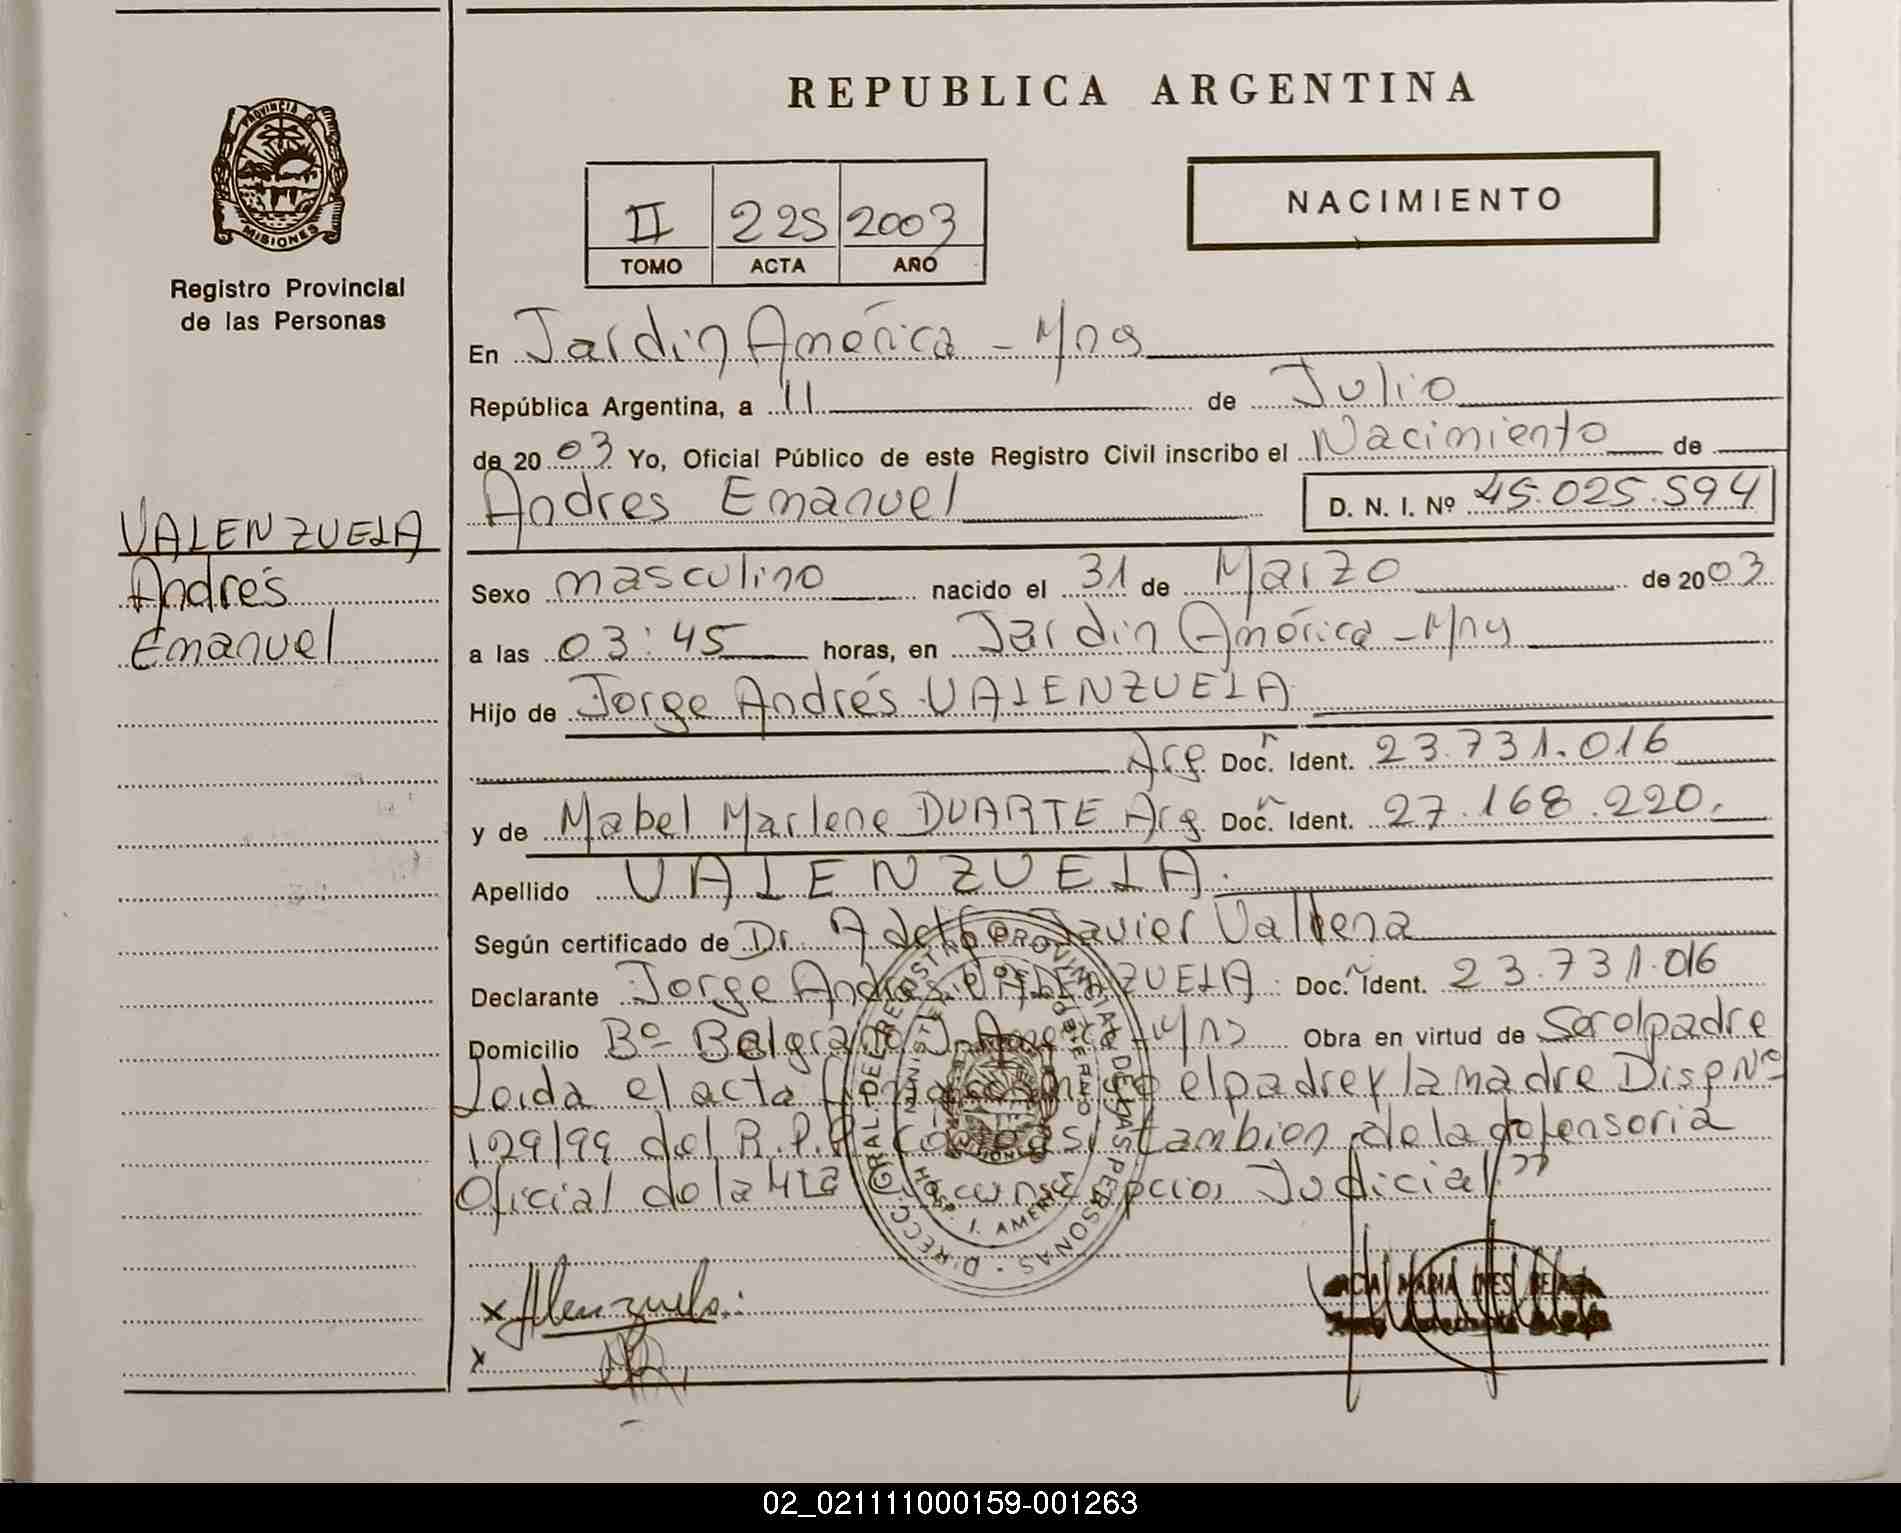 REPUBLICA ARGENTINA
PROVINCIA DE
MISIONES
Registro Provincial
de las Personas
NACIMIENTO
II 225 2003
TOMO ACTA AÑO
En Jardin América - Mns
República Argentina, a 11 de Julio
de 20 03 Yo, Oficial Público de este Registro Civil inscribo el Nacimiento de
Andres Emanuel D. N. I. Nº 45.025.594
VALENZUELA
Andrés
Emanuel
Sexo masculino nacido el 31 de Marzo de 2003
a las 03:45 horas, en Jardin América - Mns
Hijo de Jorge Andrés VALENZUELA
Arg. Doc. Ident. 23.731.016
y de Mabel Marlene DUARTE Arg. Doc. Ident. 27.168.220.
Apellido VALENZUELA.
Según certificado de Dr. Adolfo Javier
Declarante Jorge Andrés VALENZUELA Doc. Ident. 23.731.016
Domicilio Bº Belgrano J. América - Mns Obra en virtud de Ser el padre
Leida el acta el padre y la madre Disp Nº
129/99 del R.P.P. tambien de la defensoria
Oficial de la 4ta circunscripcion Judicial"
DIRECC. GRAL DEL REGISTRO PROVINCIAL DE LAS PERSONAS
MINISTERIO DE GOBIERNO
HOSP. J. AMERICA
x Valenzuela
x
MARIA INES
02_021111000159-001263